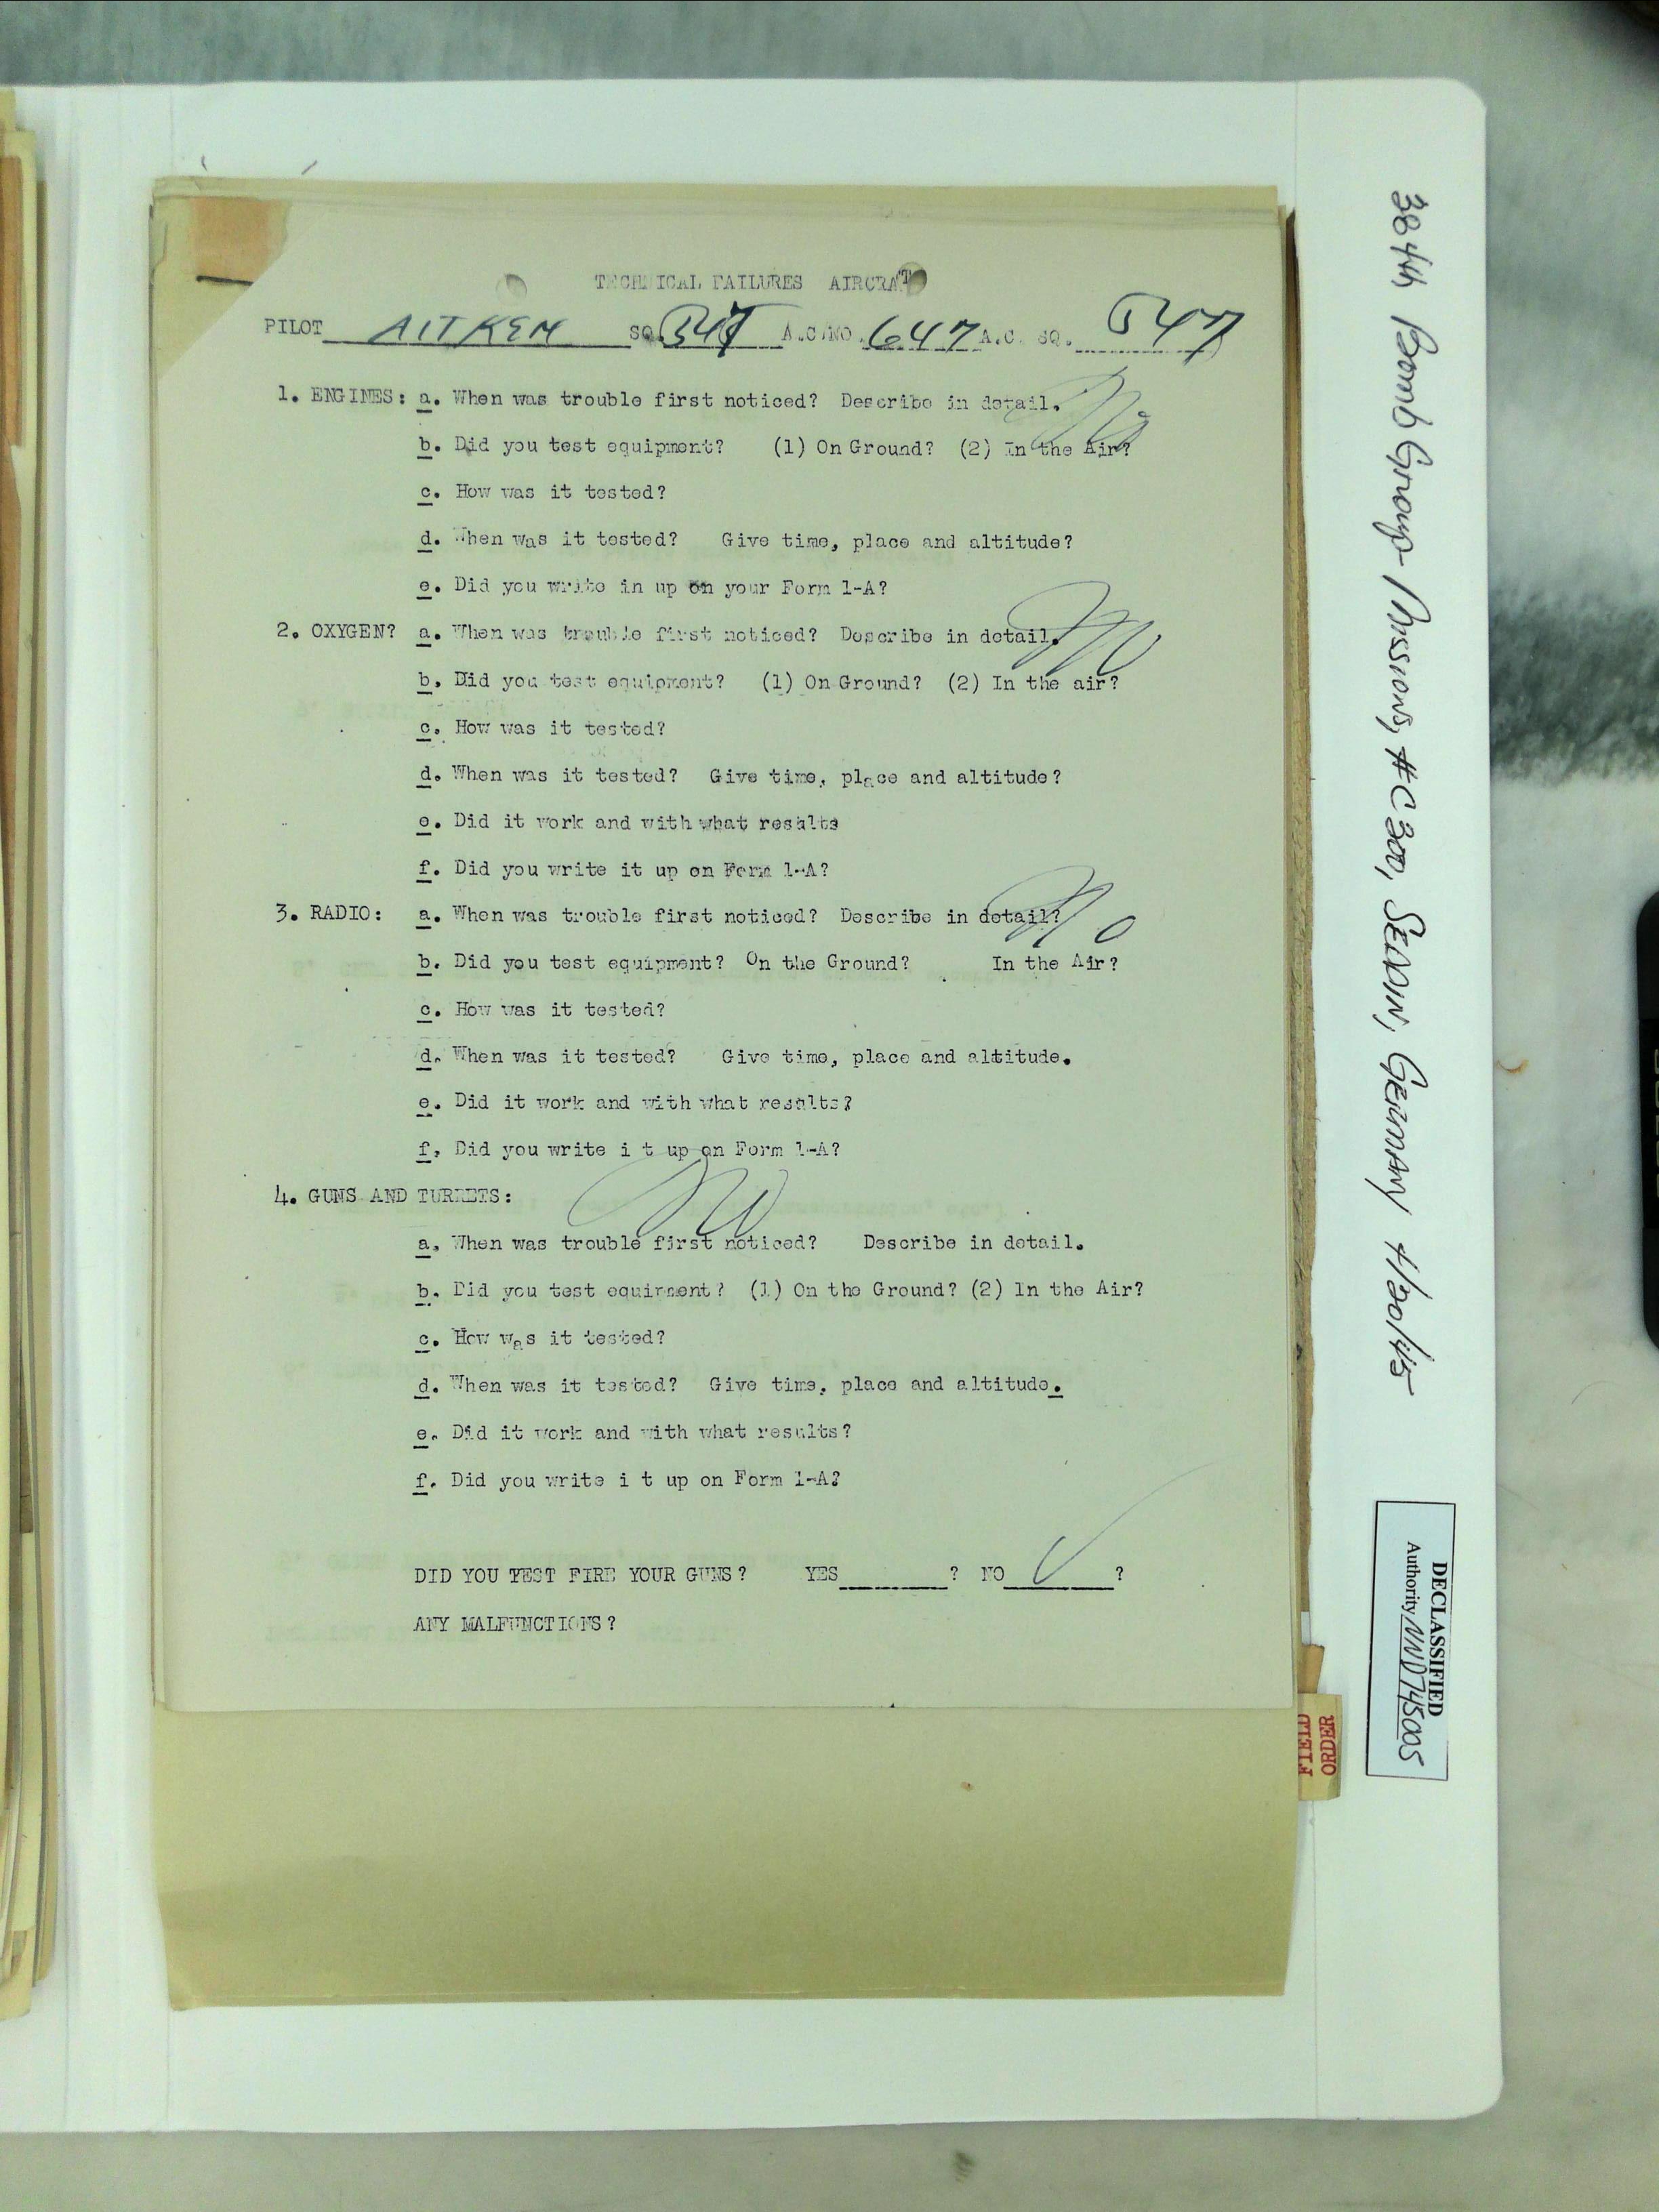 TECHNICAL FAILURES AIRCRAT
PILOT AITKEN SQ. 547 A.C.NO. 647 A.C. SQ. 547
1. ENGINES: a. When was trouble first noticed? Describe in detail. No
b. Did you test equipment? (1) On Ground? (2) In the Air?
c. How was it tested?
d. When was it tested? Give time, place and altitude?
e. Did you write in up on your Form 1-A?
2. OXYGEN? a. When was trouble first noticed? Describe in detail. No
b. Did you test equipment? (1) On Ground? (2) In the air?
c. How was it tested?
d. When was it tested? Give time, place and altitude?
e. Did it work and with what results
f. Did you write it up on Form 1-A?
3. RADIO: a. When was trouble first noticed? Describe in detail? No
b. Did you test equipment? On the Ground? In the Air?
c. How was it tested?
d. When was it tested? Give time, place and altitude.
e. Did it work and with what results?
f. Did you write i t up on Form 1-A?
4. GUNS AND TURRETS: No
a. When was trouble first noticed? Describe in detail.
b. Did you test equipment? (1) On the Ground? (2) In the Air?
c. How was it tested?
d. When was it tested? Give time, place and altitude.
e. Did it work and with what results?
f. Did you write i t up on Form 1-A?
DID YOU TEST FIRE YOUR GUNS? YES ? NO ✓ ?
ANY MALFUNCTIONS?
384th Bomb Group - Missions, #C300, Seddin, Germany 4/20/45
DECLASSIFIED
Authority NND745005
FIELD
ORDER